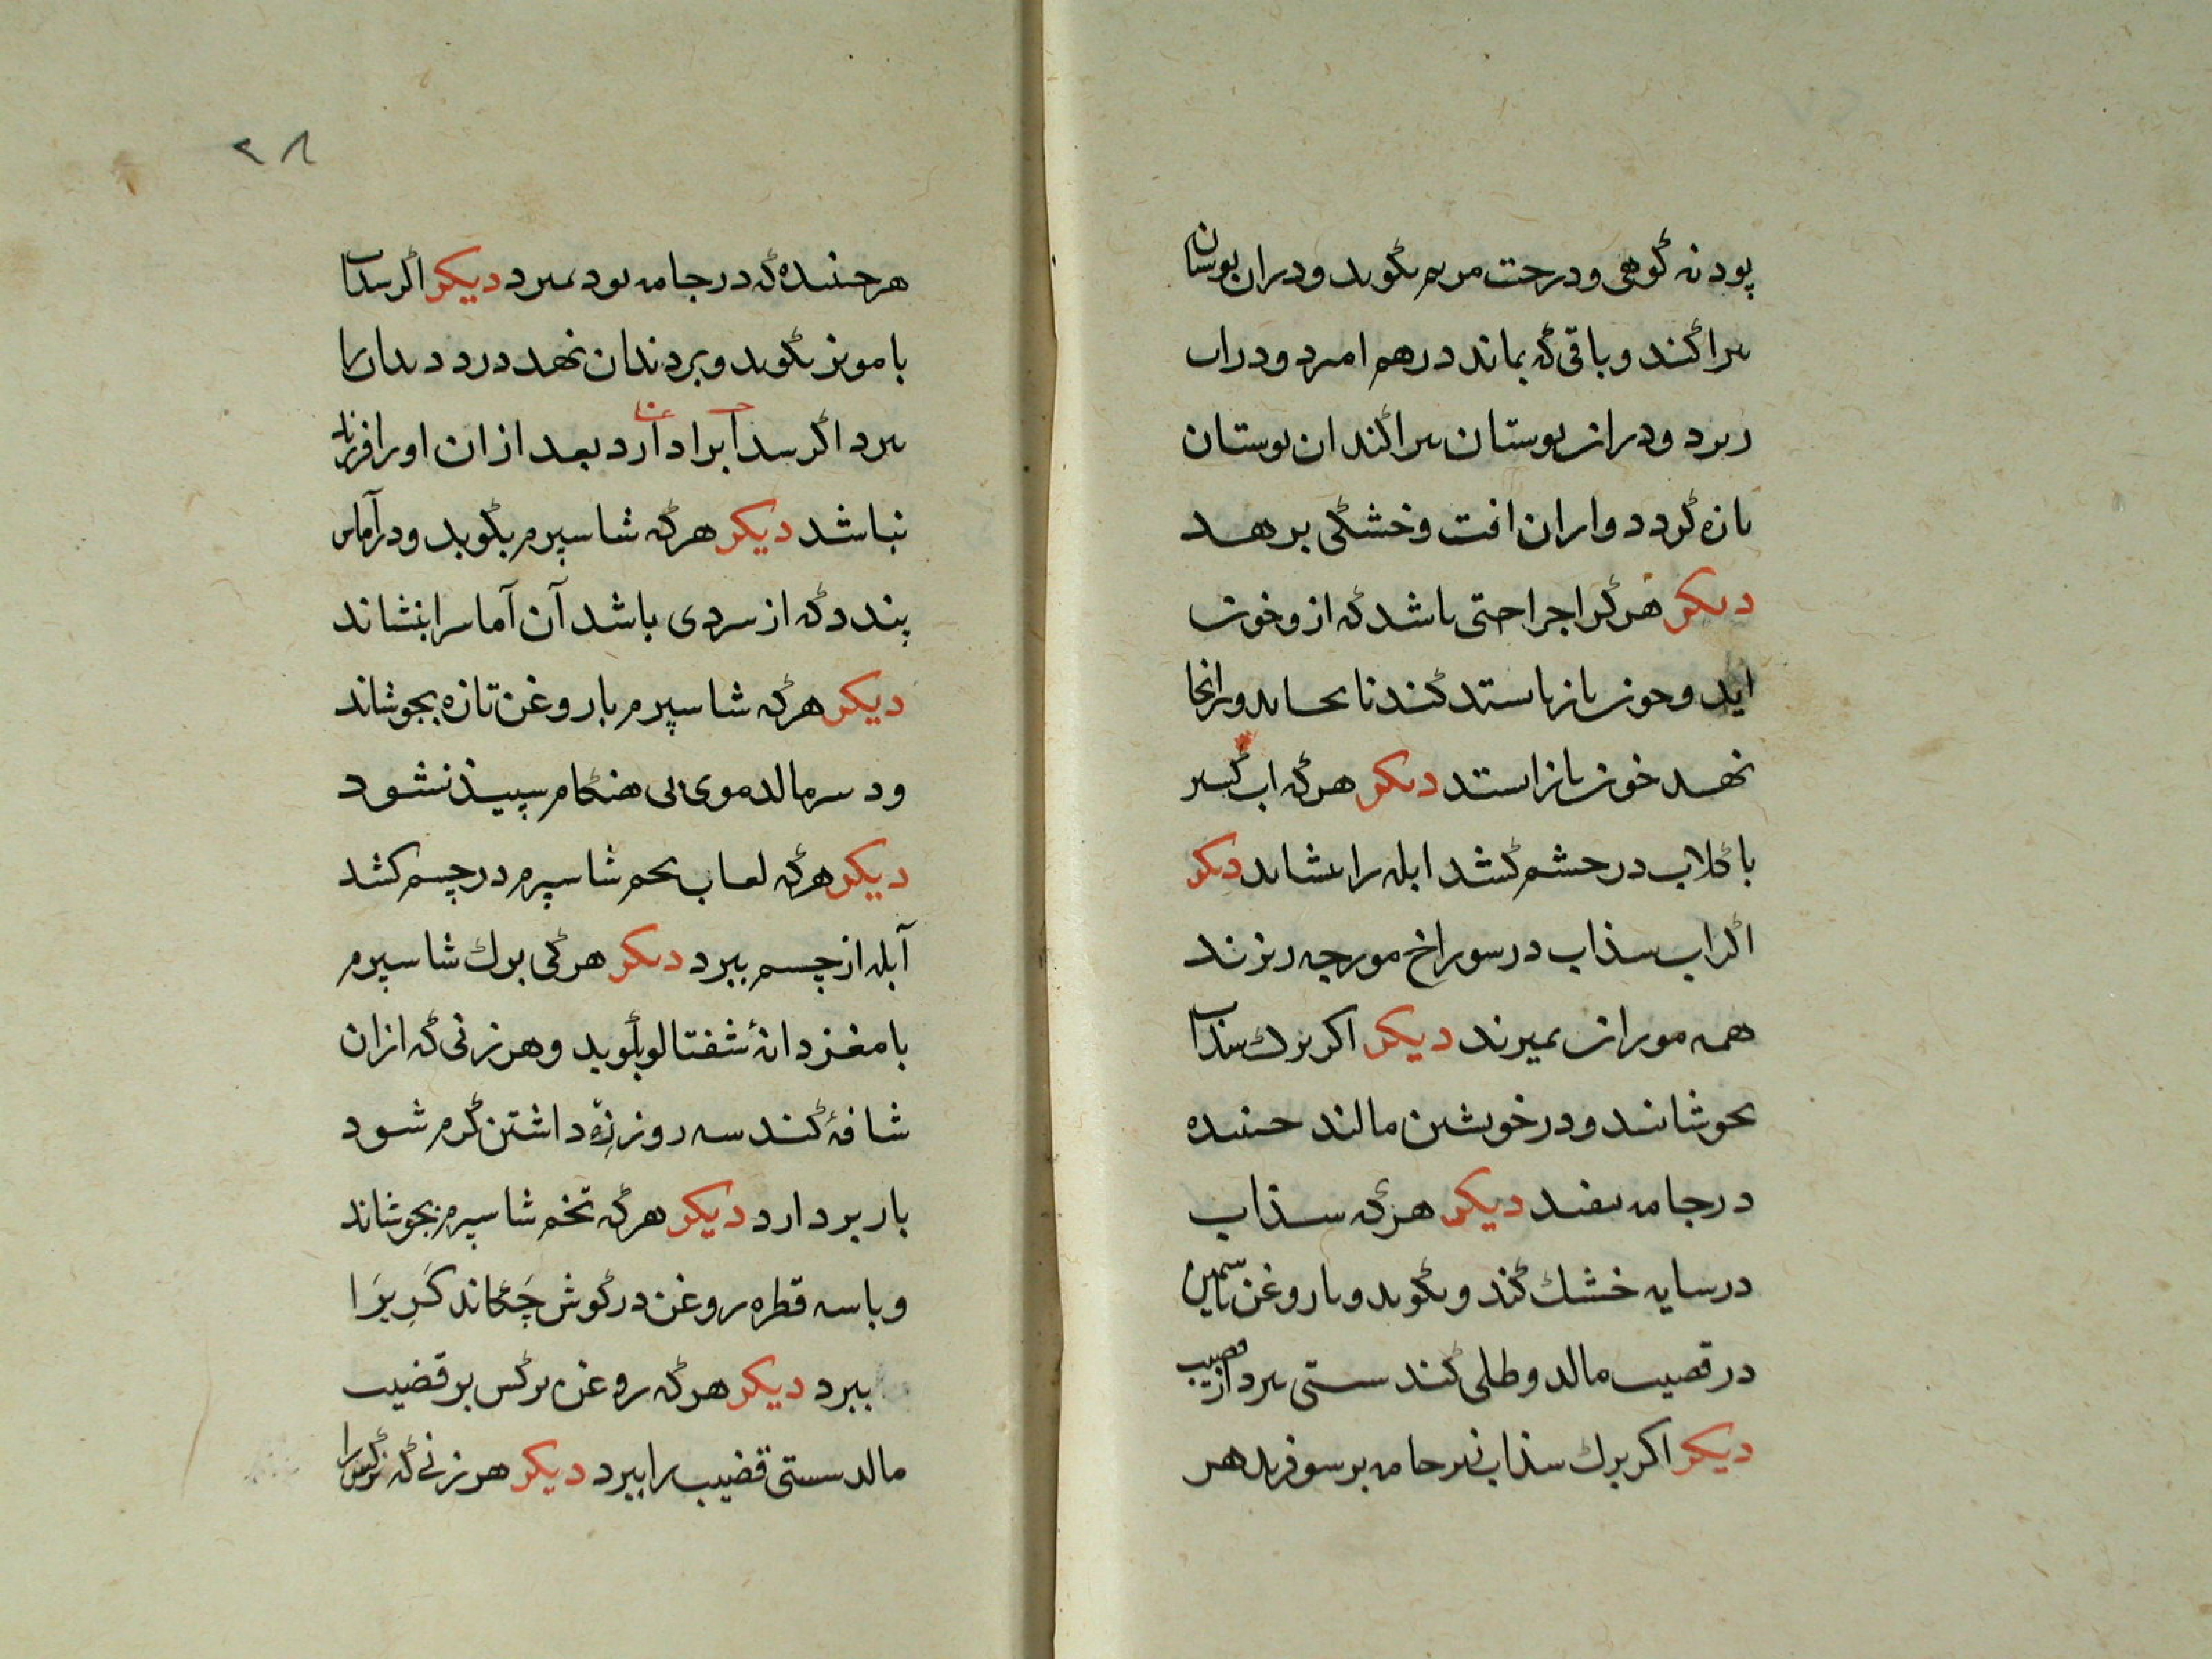 پودنه کوهی و درخت مریم بکوبد و دران بوستان
براکند و باقی که بماند درهم امیزد و دراب
ریزد و دران بوستان براکند ان بوستان
تازه کردد و ازان افت و خشکی برهد
دیکر هرکرا جراحتی باشد که ازو خون
اید و خون باز ناستد کندنا بخاید و برانجا
نهد خون باز استد دیکر هرکه اب کسیر
با کلاب در چشم کشد ابله را بنشاند دیکر
اکر اب سذاب در سوراخ مورچه ریزند
همه موران بمیرند دیکر اکر برک سذاب
بجوشانند و در خویشتن مالند جنبنده
در جامه نیفتد دیکر هرکه سذاب
در سایه خشک کند و بکوبد و با روغن یاسمین
در قضیب مالد و طلی کند سستی ببرد از قضیب
دیکر اکر برک سذاب زیر جامه بر سو فرید هر
۲۸
هر جنبنده که در جامه بود بمیرد دیکر اکر سداب
با مویز بکوبد و بر دندان نهد درد دندان را
ببرد اکر سداب را دارد بعد ازان او را فرزند
نباشد دیکر هرکه شاسپرم بکوبد و در آماس
بندد که از سردی باشد آن آماس را بنشاند
دیکر هرکه شاسپرم با روغن تازه بجوشاند
و در سر مالد موی بی هنکام سپیذ نشود
دیکر هرکه لعاب تخم شاسپرم در چسم کشد
آبله از چسم ببرد دیکر هرکی برک شاسپرم
با مغز دانهٔ شفتالو بکوبد و هر زنی که ازان
شافهٔ کند سه روز زه داشتن کرم شود
بار بردارد دیکر هرکه تخم شاسپرم بجوشاند
و با سه قطره روغن در کوش چکاند کری را
ببرد دیکر هرکه روغن نرکس بر قضیب
مالد سستی قضیب را ببرد دیکر هر زنی که نرکس را